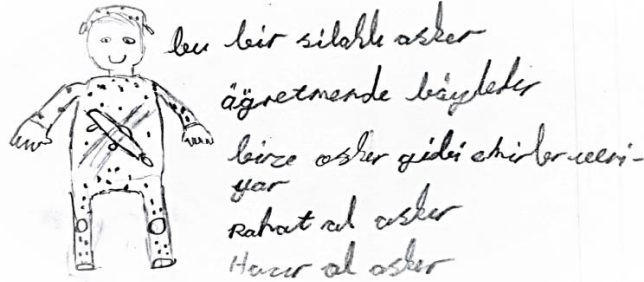 bu bir silahlı asker
äğretmende bäyledir
bize asker gibi emirler veri-
yar
Rahat al asker
Hazır al asker